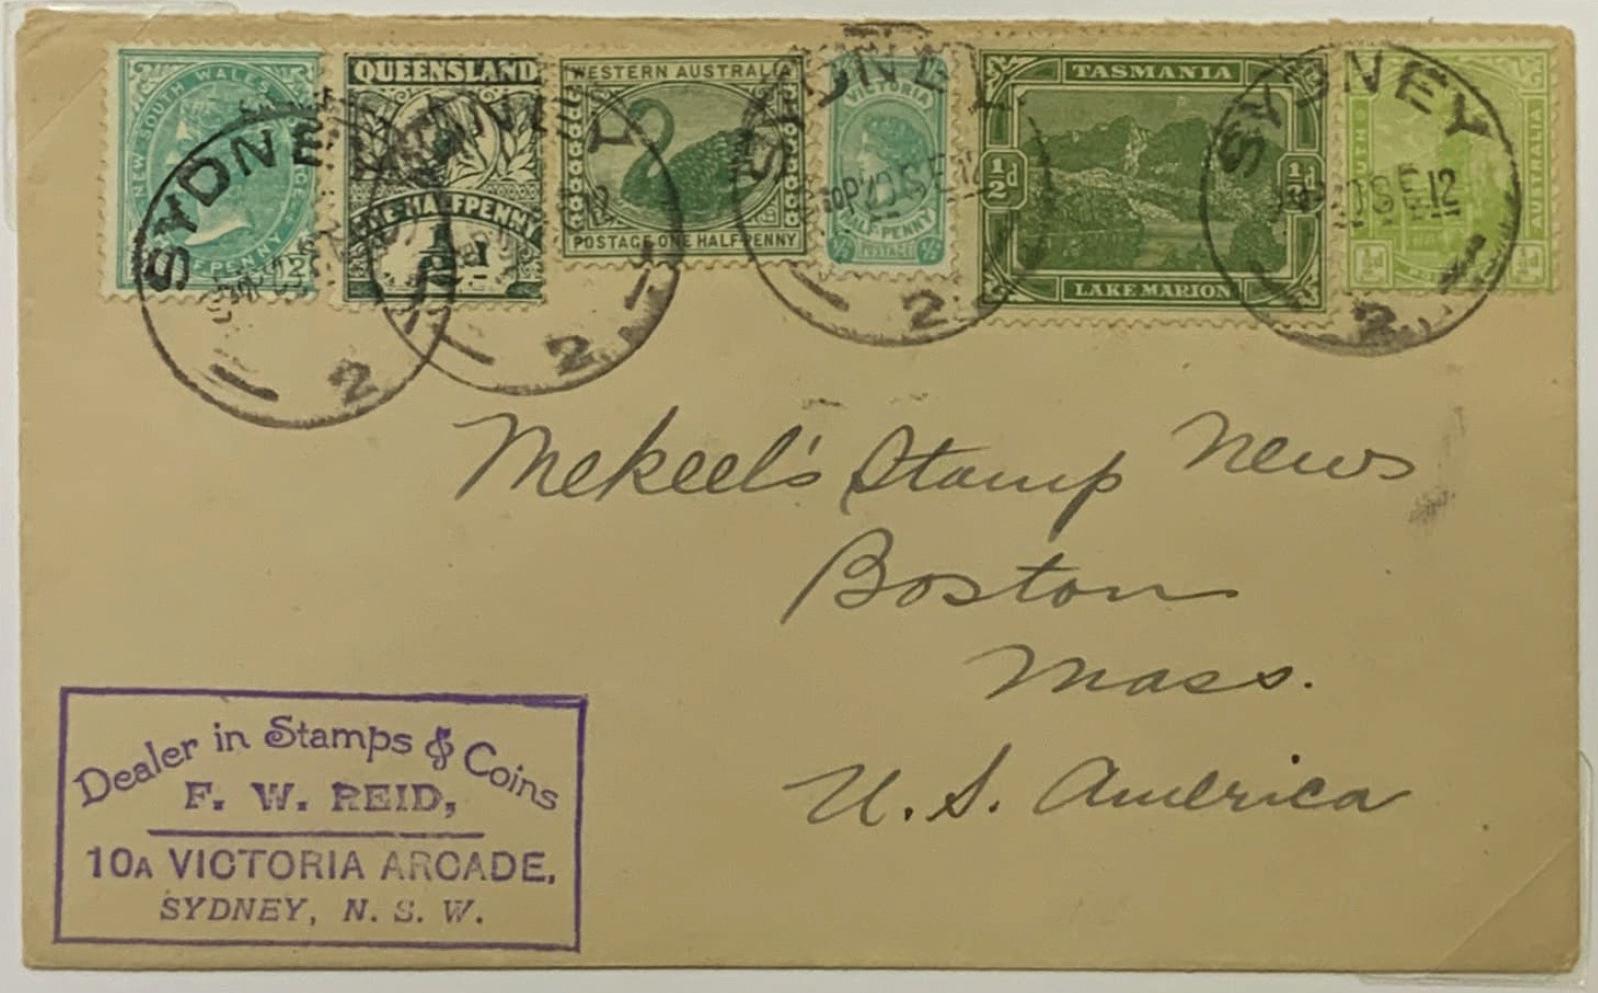 NEW SOUTH WALES
HALFPENNY
QUEENSLAND
ONE HALFPENNY
WESTERN AUSTRALIA
POSTAGE ONE HALF-PENNY
VICTORIA
HALF-PENNY
½ POSTAGE ½
TASMANIA
½d ½d
LAKE MARION
SOUTH AUSTRALIA
½d ½d
SYDNEY
2
SYDNEY
2
SYDNEY
20 SE 12
2
SYDNEY
20 SE 12
2
Mekeel's Stamp News
Boston
Mass.
U. S. America
Dealer in Stamps & Coins
F. W. REID,
10A VICTORIA ARCADE,
SYDNEY, N. S. W.